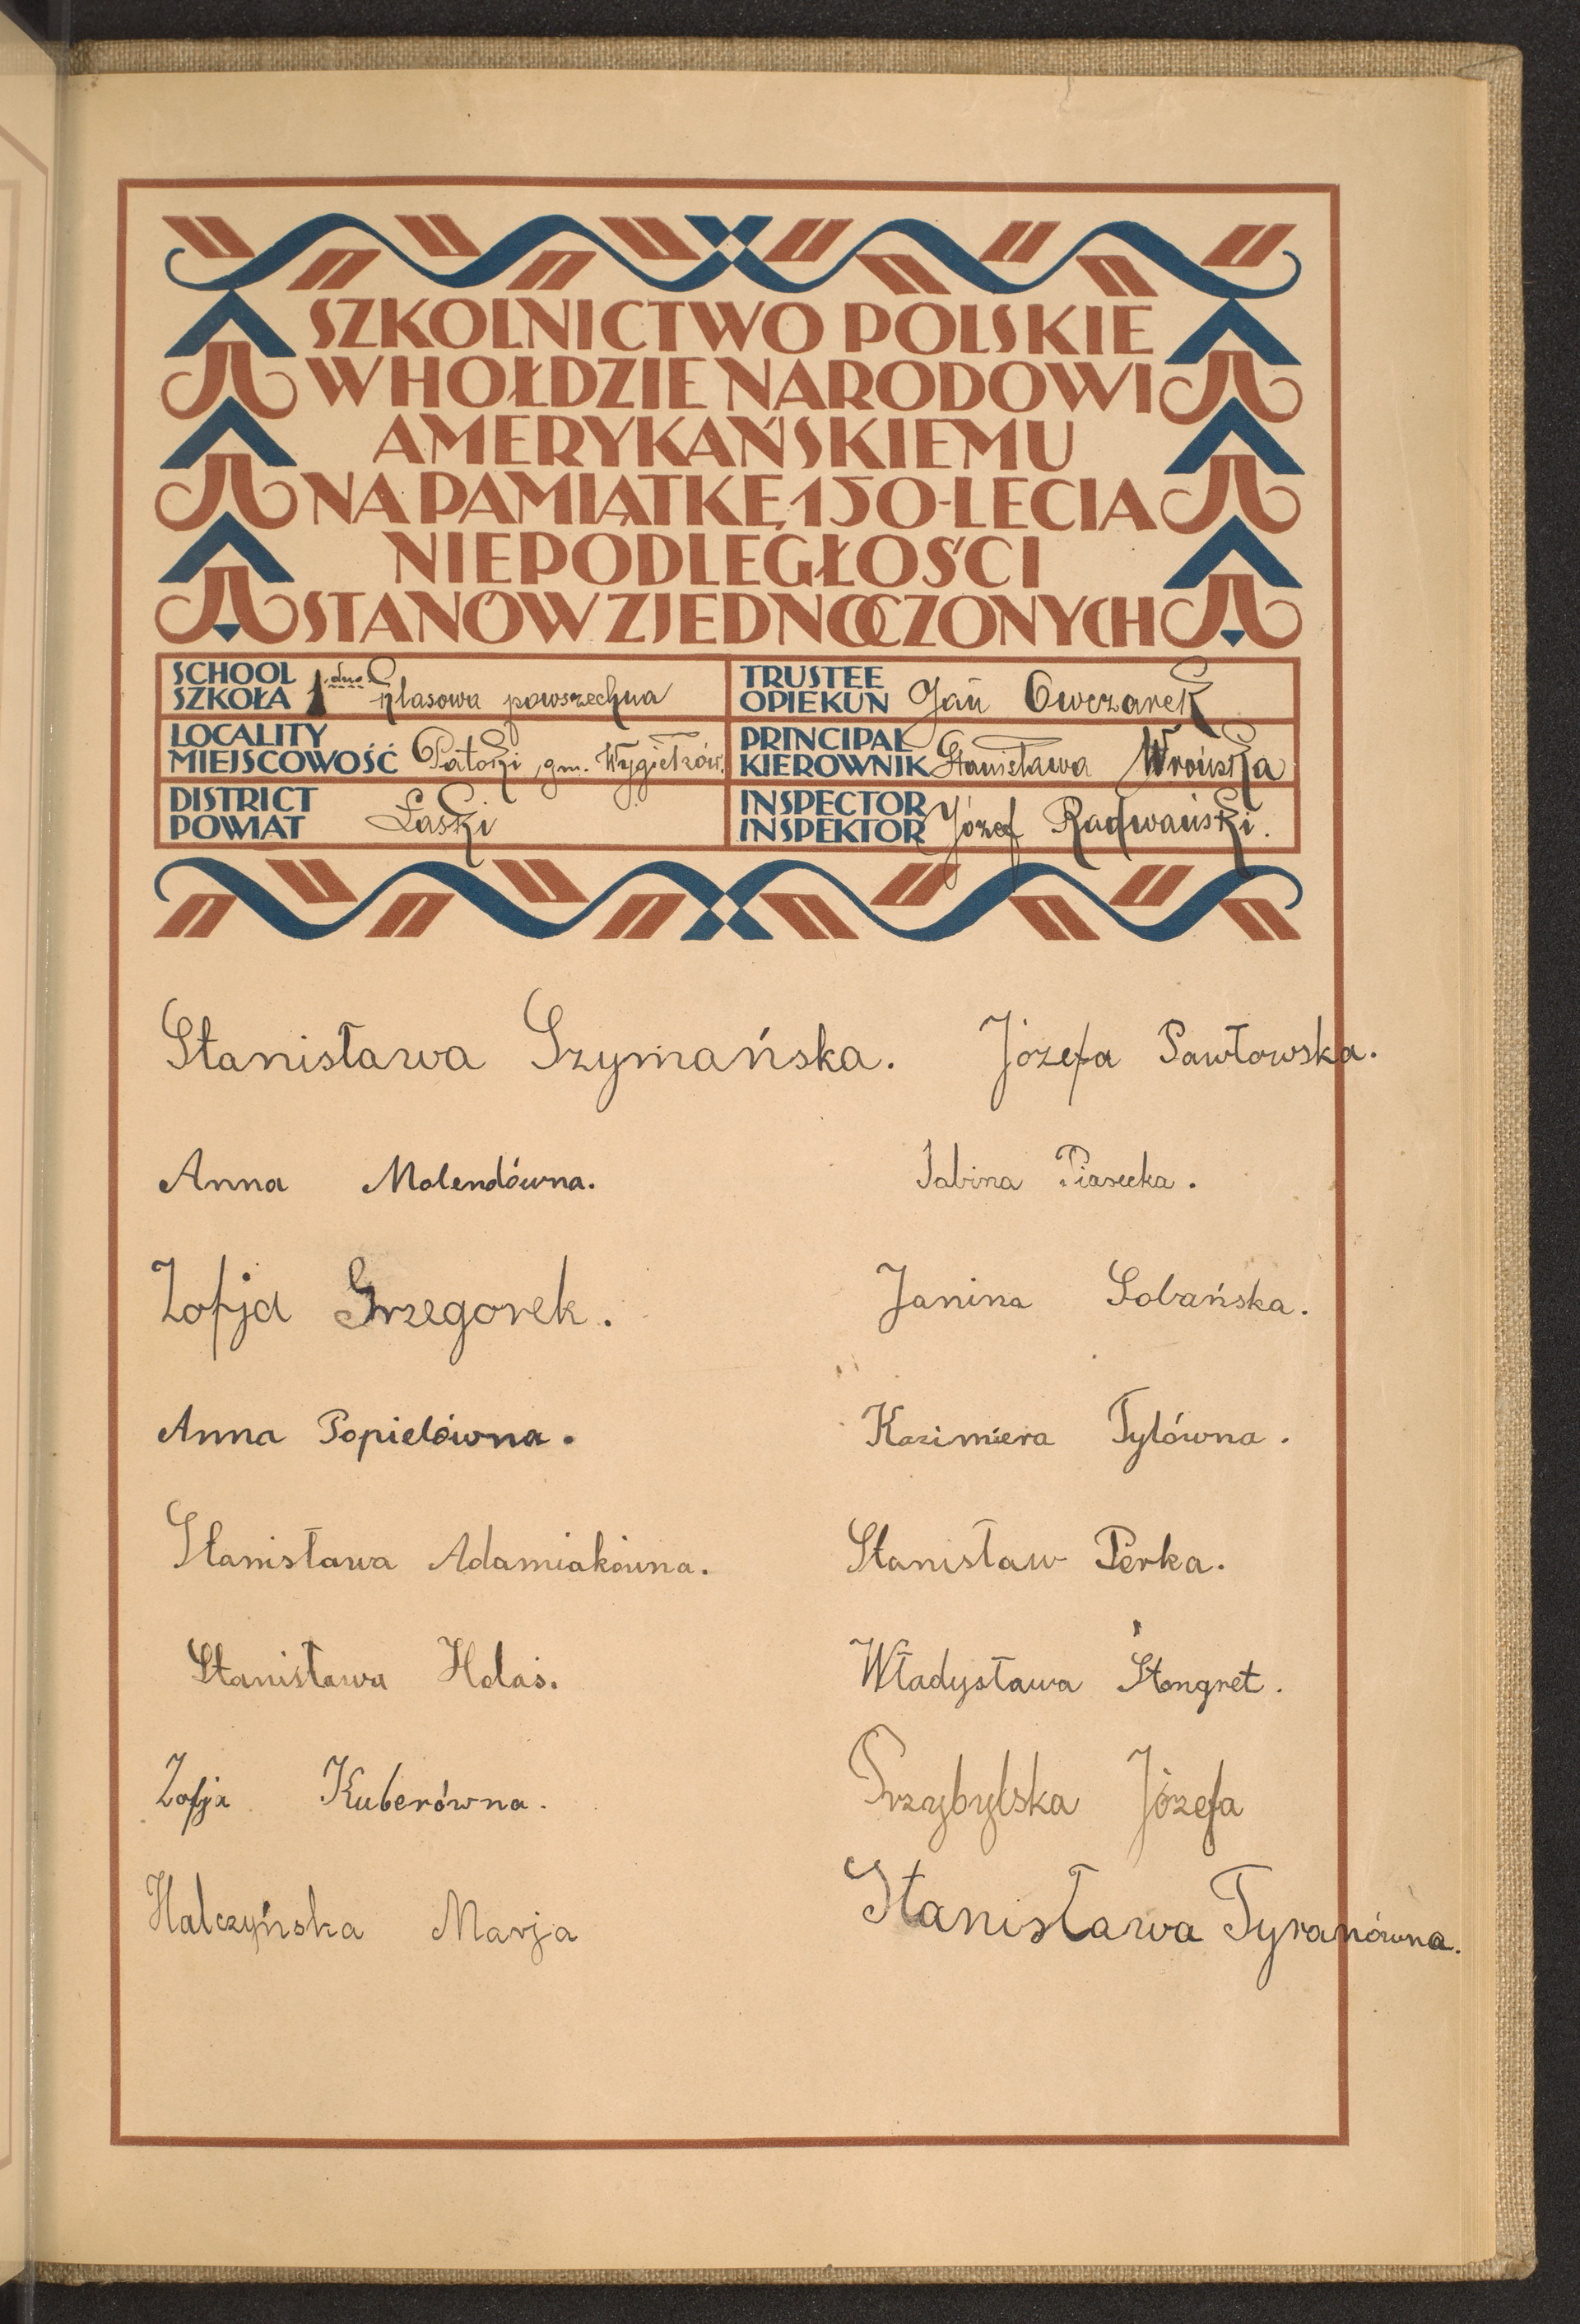 SZKOLNICTWO POLSKIE
W HOŁDZIE NARODOWI
AMERYKAŃSKIEMU
NA PAMIĄTKĘ 150-LECIA
NIEPODLEGŁOŚCI
STANÓW ZJEDNOCZONYCH
SCHOOL
SZKOŁA 1 dno klasowa powszechna
LOCALITY
MIEJSCOWOŚĆ Patoki, gm. Wygiełzów.
DISTRICT
POWIAT Łaski
TRUSTEE
OPIEKUN Jan Owczarek
PRINCIPAL
KIEROWNIK Stanisława Wrońska
INSPECTOR
INSPEKTOR Józef Radwański.
Stanisława Szymańska.
Anna Molendówna.
Zofja Grzegorek.
Anna Popielówna.
Stanisława Adamiakówna.
Stanisława Holaś.
Zofja Kuberówna.
Halczyńska Marja
Józefa Pawłowska.
Sabina Piasecka.
Janina Sobańska.
Kazimiera Tylówna.
Stanisław Perka.
Władysława Stangret.
Przybylska Józefa
Stanisława Tyranówna.